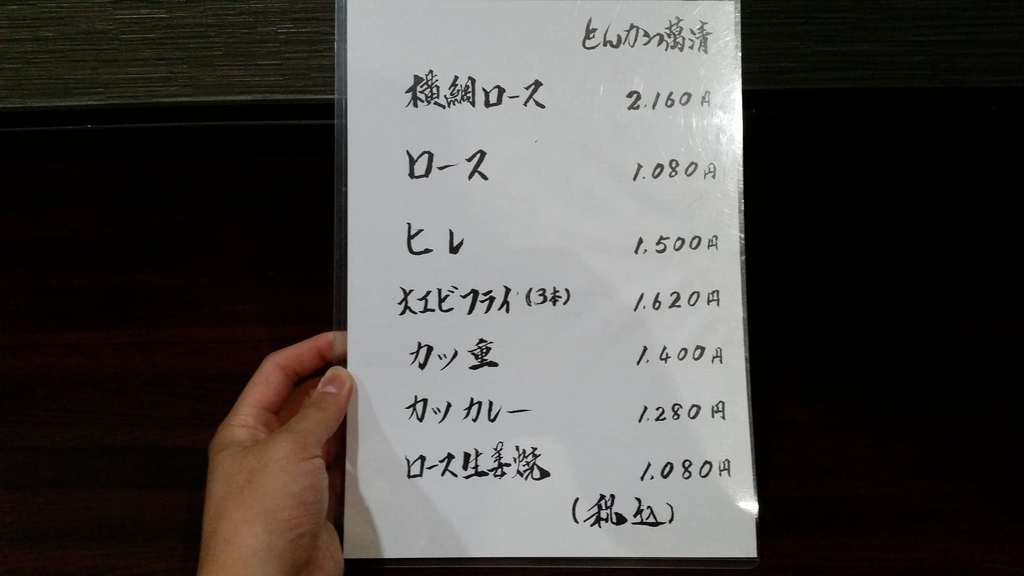 とんかつ萬清
横綱ロース 2.160円
ロース 1.080円
ヒレ 1.500円
大エビフライ(3本) 1.620円
カツ重 1.400円
カツカレー 1.280円
ロース生姜焼 1.080円
(税込)